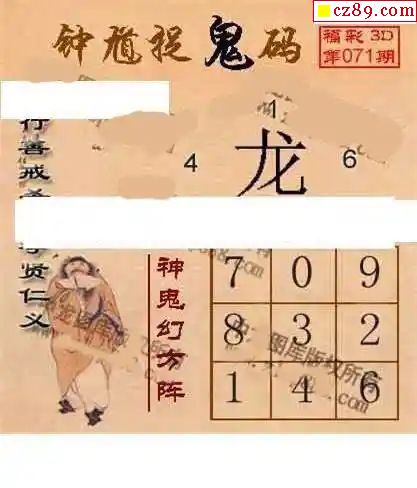 cz89.com
钟馗捉鬼码
福彩3D
第071期
1
4 龙 6
行善戒
贤仁义
神鬼幻方阵
7 0 9
8 3 2
1 4 6
图库版权所有